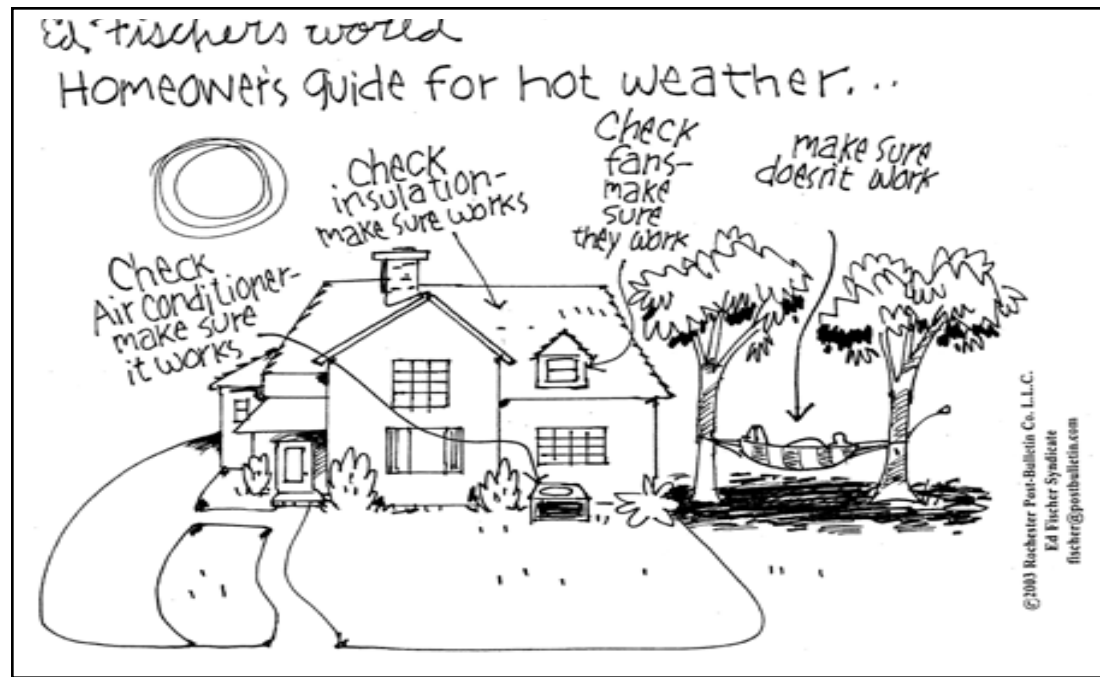 Ed Fischers world
Homeowers guide for hot weather...
Check
Air conditioner-
make sure
it works
check
insulation-
make sure works
Check
fans-
make
sure
they work
make sure
doesn't work
©2003 Rochester Post-Bulletin Co. L.L.C.
Ed Fischer Syndicate
fischer@postbulletin.com